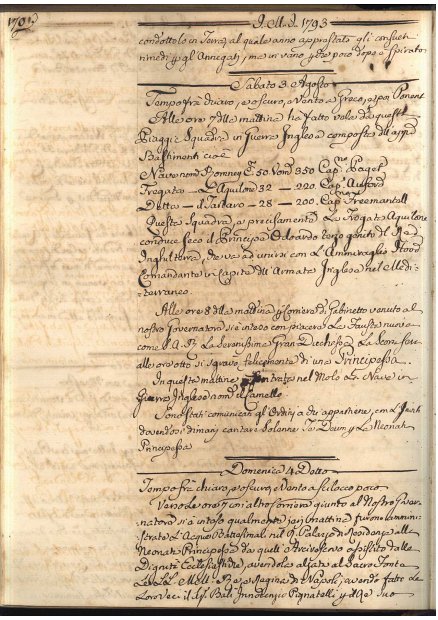 1793
condottolo in Terra, al quale anno apprestato gli consueti
rimedj gl'Annegati, ma in vano, poco dopo è spirato
Sabato 3. Agosto
Tempo frà chiaro, e oscuro, e Vento a Greco, e poi Ponent
Alle ore della mattina ha fatto vela da questa
Piaggia Squadra in Guerra Inglese composta di
Bastimenti cioè
Nave nom: Romney C. 50. Uom: 350. Cap: Paget
Fregata L'Aquilone 32 — 220. Cap:
Detta — il Tartaro — 28 — 200. Cap: Freemantell
Questa Squadra, e precisamente La Fregata Aquilone
conduce seco il Principe Odoardo terzo genito del Rè d
Inghilterra, che và ad unirsi con L'Ammiraglio Hood
Comandante in Capite dell'Armata Inglese nel Medi-
terraneo.
Alle ore 8 della mattina Corriere di Gabinetto venuto al
nostro Governatore si è inteso con piacere La fausta nuova
come S.A.R. La Serenissima Gran Duchessa La Scorsa
alle ore otto si sgravò felicemente di una Principessa
In questa mattina entrata nel Molo La Nave in
Guerra Inglese nom: il Camello
Sono stati comunicati gl'Ordini a chi appartiene, con
dovendosi dimani cantare solenne Te Deum La Neonata
Principessa
Domenica 4. Detto
Tempo frà chiaro, e oscuro, e Vento a Scilocco poco
Verso Le ore con altro Corriere giunto al Nostro Gover-
natore si è inteso qualmente jeri mattina furono ammini-
strate L'Acque Battesimali nel R. Palazzo di Residenza alla
Neonata Principessa da quell'Arcivescovo assistito dalle
Dignità Ecclesiastiche, avendola alzata al Sacro Fonte
Le LL. MM. il Rè, e Regina di Napoli, avendo fatte Le
Loro Veci il Sig. Balì Innocenzio Pignatelli Suo